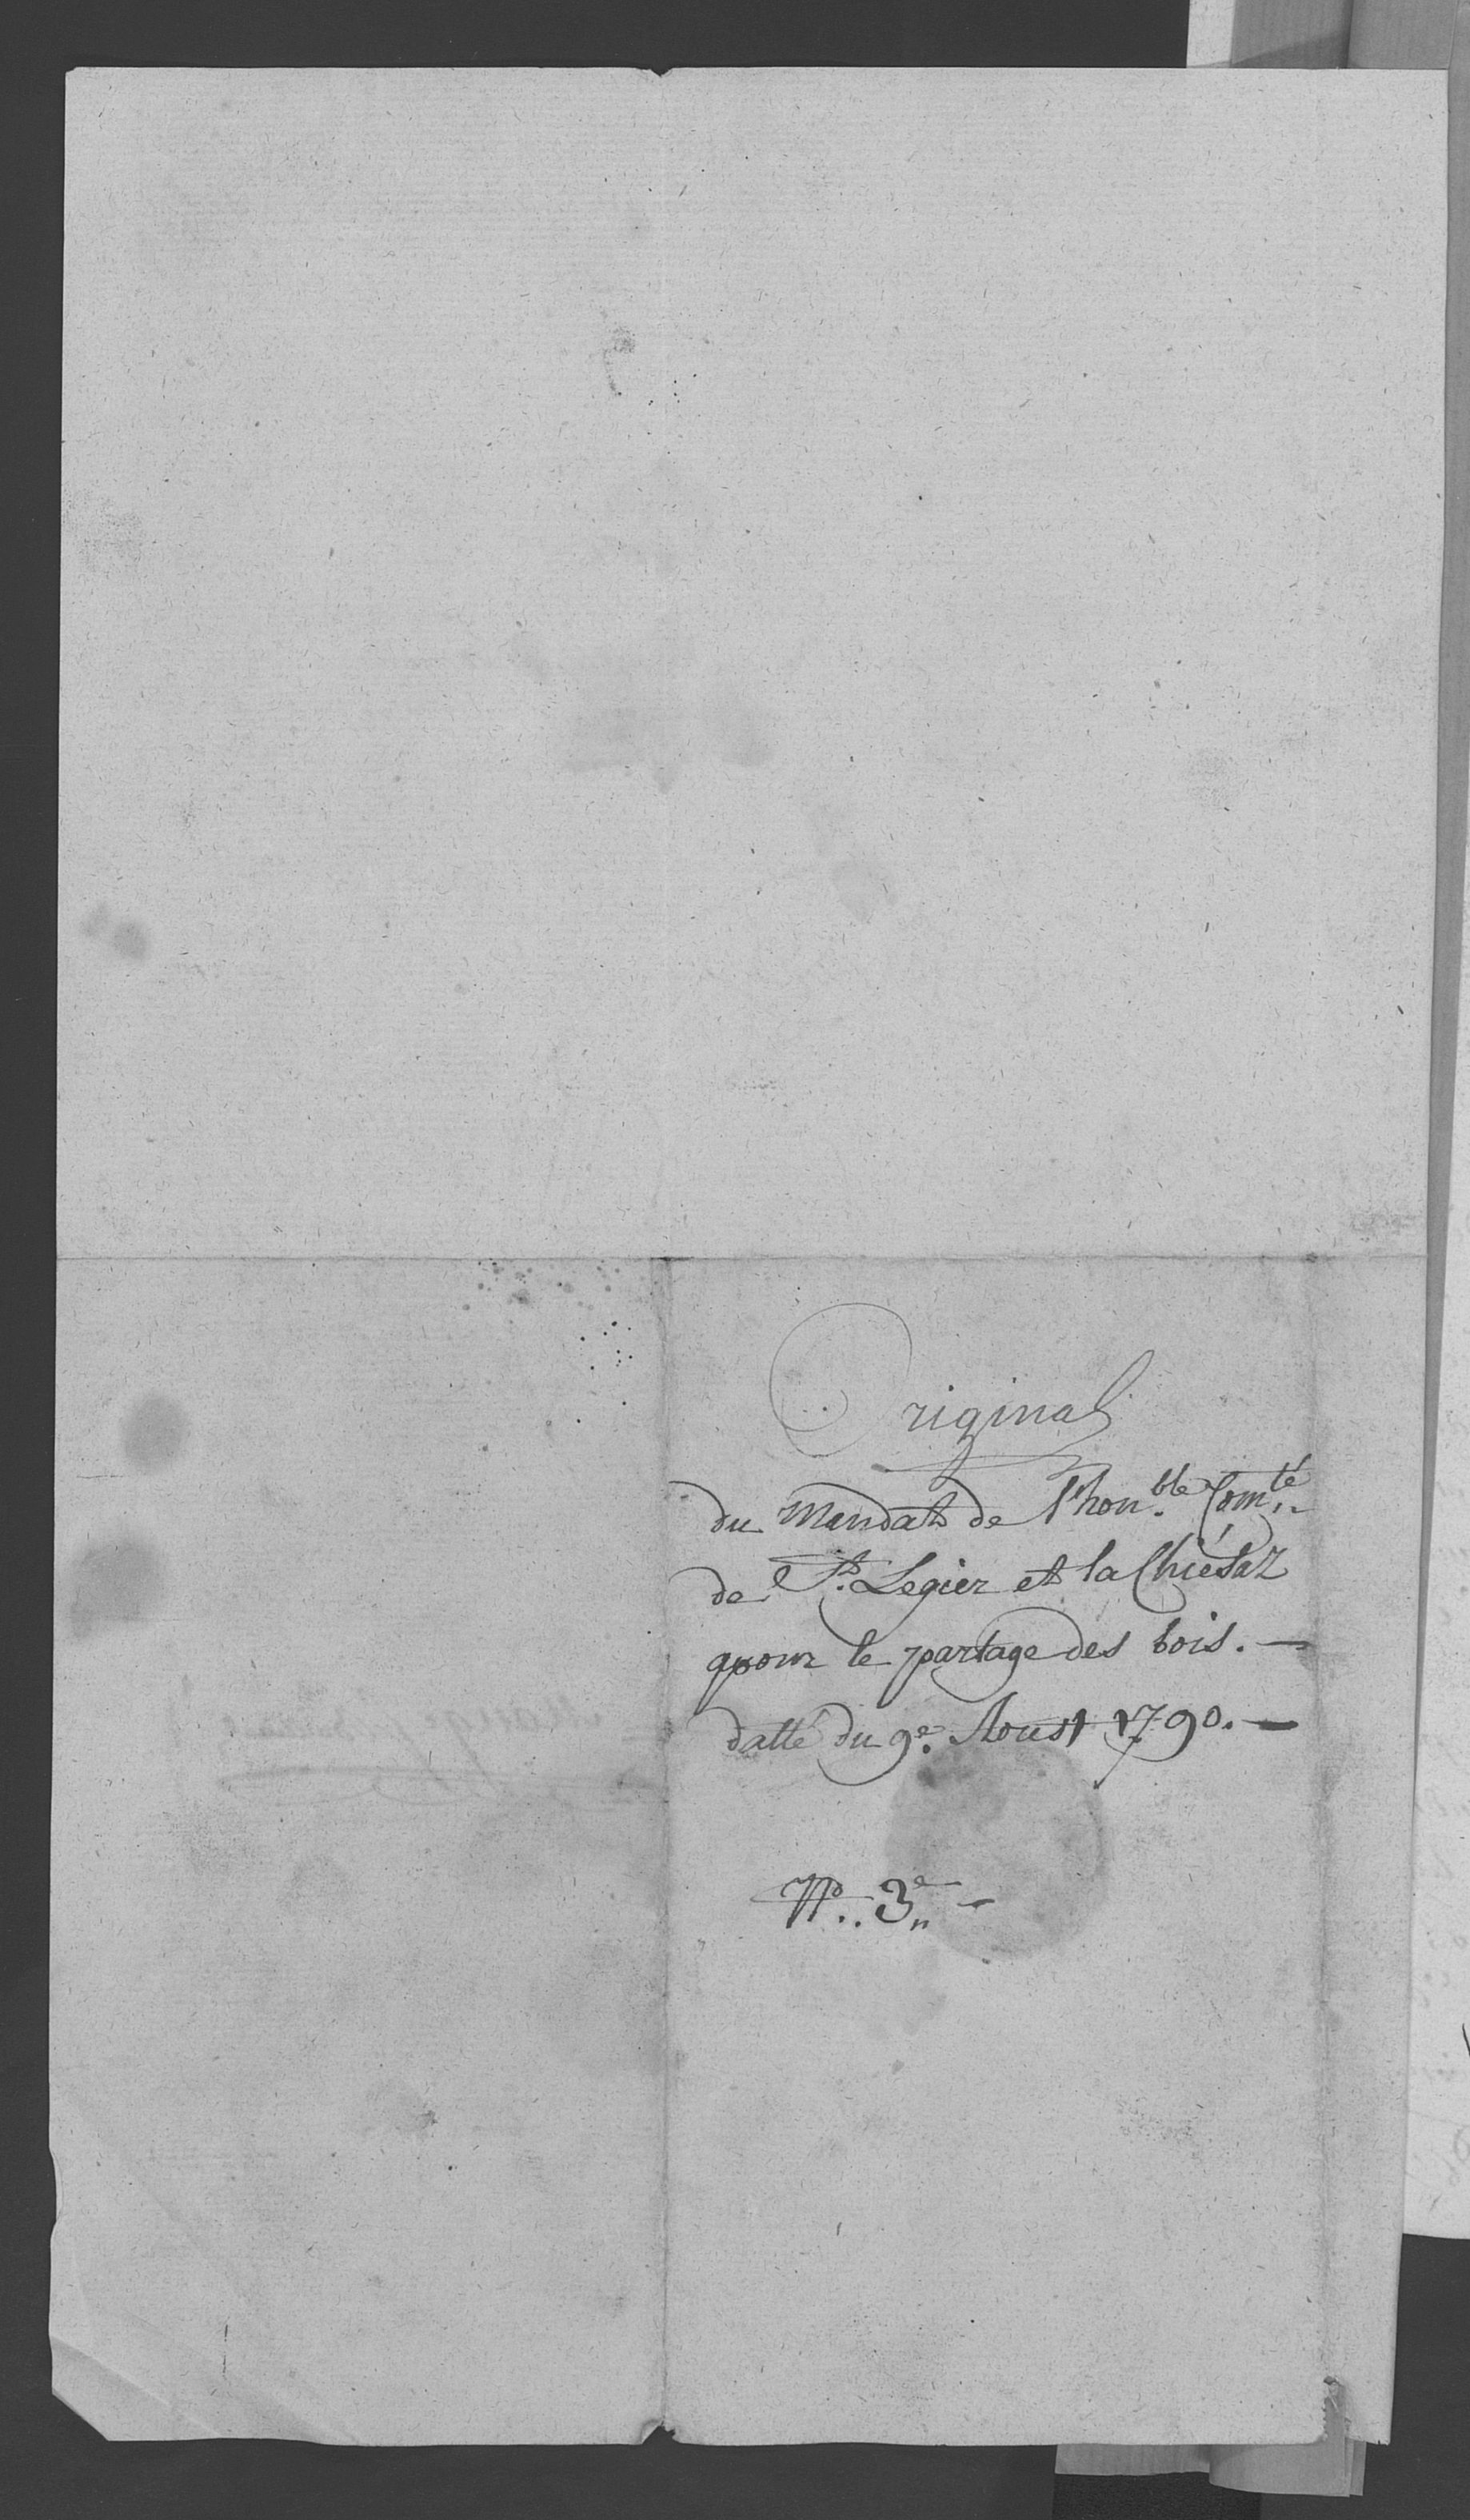 Original
du Mandat de l'hon.ble Com.té
de St. Legier et la Chiésaz
pour le partage des bois. —
datté du 9e. Aoust 1790. —
No.. 3e —